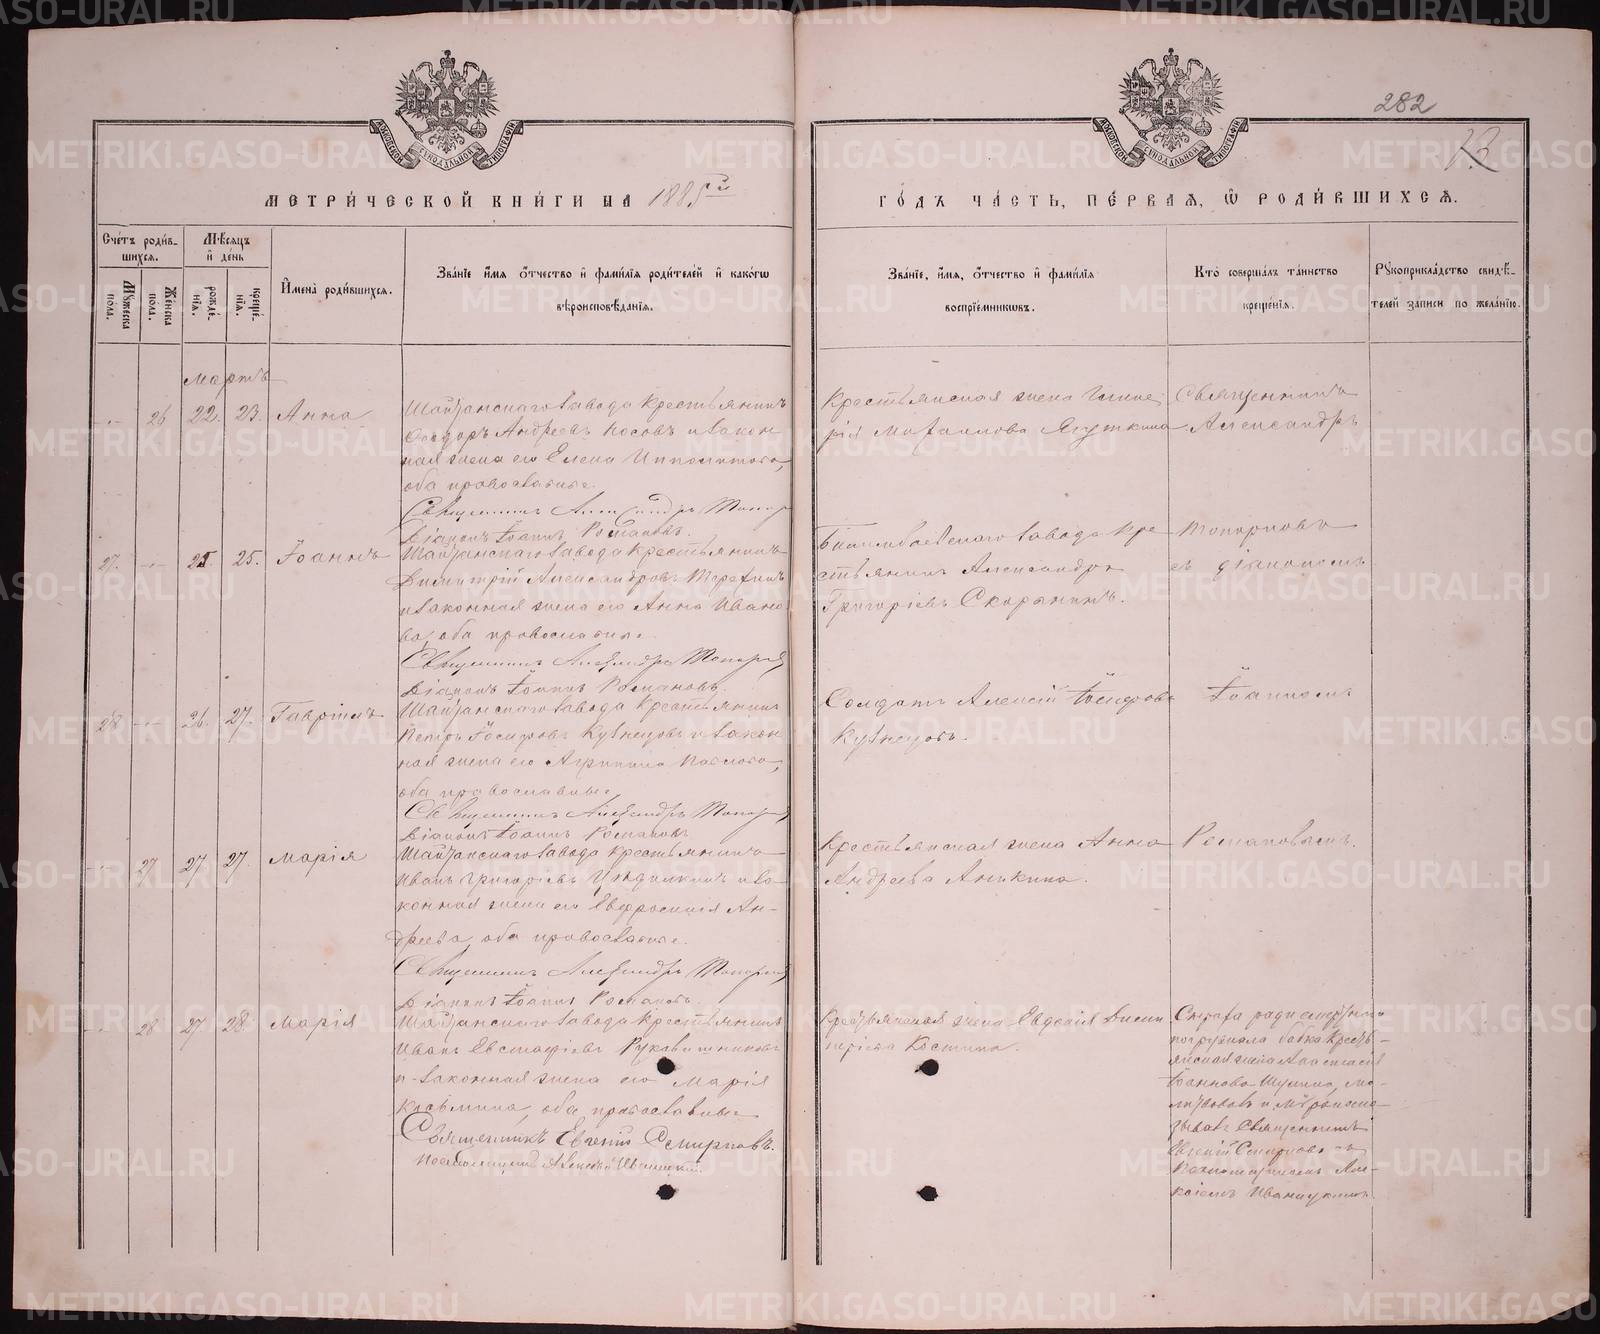 282
МОСКОВСКОЙ СѴНОДАЛЬНОЙ ТИПОГРАФІИ
МОСКОВСКОЙ СѴНОДАЛЬНОЙ ТИПОГРАФІИ
МЕТРИ́ЧЕСКОЙ КНИ́ГИ НА 1885й
ГО́ДЪ ЧА́СТЬ, ПЕ́РВАЯ, Ѡ РОДИ́ВШИХСЯ.
Сче́тъ роди́в-
шихся.
Мꙋжеска по́ла.
Же́нска по́ла.
Мѣ́сяцъ
и҆ де́нь
рожде́-
нїя.
креще́-
нїя.
И҆мена̀ роди́вшихся.
Зва́нїе и҆́мя ѻ҆́тчество и҆ фами́лїя роди́телей и҆ како́гѡ
вѣроисповѣ́данїя.
Зва́нїе, и҆́мя, ѻ҆́тчество и҆ фами́лїя
воспрїе́мникѡвъ.
Кто̀ соверша́лъ та́инство
креще́нїя.
Рꙋкоприкла́дство свидѣ́-
телей за́писи по жела́нїю.
Мартъ
26 22. 23. Анна
Шайтанскаго завода крестьянинъ
Ѳеодоръ Андреевъ Носовъ и закон-
ная жена его Елена Ипполитова,
оба православные.
Священникъ Александръ Топор
Діаконъ Іоаннъ Романовъ.
Крестьянская жена
Михаилова
Священникъ
Александръ
27. 25. 25. Іоаннъ
Шайтанскаго завода крестьянинъ
Димитрій Александровъ
и законная жена его Анна Ивано-
ва, оба православные.
Священникъ Александръ Топор
Діаконъ Іоаннъ Романовъ.
Билимбаевскаго завода кре-
стьянинъ Александръ
Григорьевъ Скорынинъ.
Топорковъ
съ діакономъ
28 26. 27. Гавріилъ
Шайтанскаго завода крестьянинъ
Петръ Іосифовъ Кузнецовъ и закон-
ная жена его Агрипина Павлова,
оба православные
Священникъ Александръ Топор
Діаконъ Іоаннъ Романовъ
Солдатъ Алексій Іосифовъ
Кузнецовъ.
Іоанномъ
27 27. 27. Марія
Шайтанскаго завода крестьянинъ
Иванъ Григорьевъ и за-
конная жена его Евфросинія Ан-
дреева, оба православные.
Священникъ Александръ Топор
Діаконъ Іоаннъ Романовъ.
Крестьянская жена Анна
Андреева Аникина.
Романовымъ.
28 27. 28. Марія
Шайтанскаго завода крестьянинъ
Иванъ Евстафіевъ Рукавишниковъ
и законная жена его Марія
Косьмина, оба православные
Священникъ Евгеній Смирновъ.
Псаломщикъ Алексій
Крестьянская жена Евдокія
Костина.
Страха ради смертнаго
погружала бабка кресть-
янская жена Анастасія
Іоаннова Шулина, мо-
литвовалъ и мѵропома-
зывалъ Священникъ
Евгеній Смирновъ съ
Псаломщикомъ Але-
ксіемъ